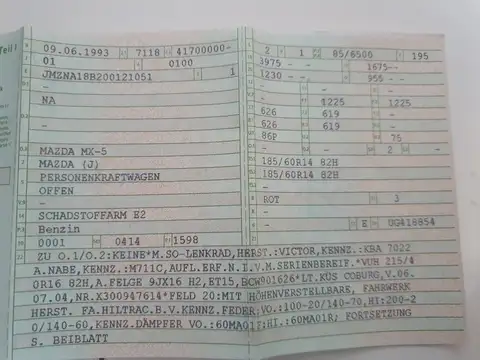 Teil I
09.06.1993 7118 41700000-
01 0100
JMZNA18B200121051 1
-
NA
-
-
MAZDA MX-5
MAZDA (J)
PERSONENKRAFTWAGEN
OFFEN
-
SCHADSTOFFARM E2
Benzin
0001 0414 1598
2 1 85/6500 195
3975 - 1675--
1230 -- 955 --
- - -
1225 1225
626 619 -
626 619 -
86P 75
- - 2 -
185/60R14 82H
185/60R14 82H
-
-
ROT 3
-
- E UG418854
ZU O.1/O.2:KEINE*M.SO-LENKRAD,HERST.:VICTOR,KENNZ.:KBA 7022
A.NABE,KENNZ.:M711C,AUFL.ERF.N.I.V.M.SERIENBEREIF.*VUH 215/4
0R16 82H,A.FELGE 9JX16 H2,ET15, 901626*LT.KÜS COBURG,V.06.
07.04,NR.X300947614*FELD 20:MIT HÖHENVERSTELLBARE, FAHRWERK
HERST. FA.HILTRAC.B.V.KENNZ.FEDER.VO.:100-20/140-70,HI:200-2
0/140-60,KENNZ.DÄMPFER VO.:60MA01F;HI.:60MA01R; FORTSETZUNG
S. BEIBLATT